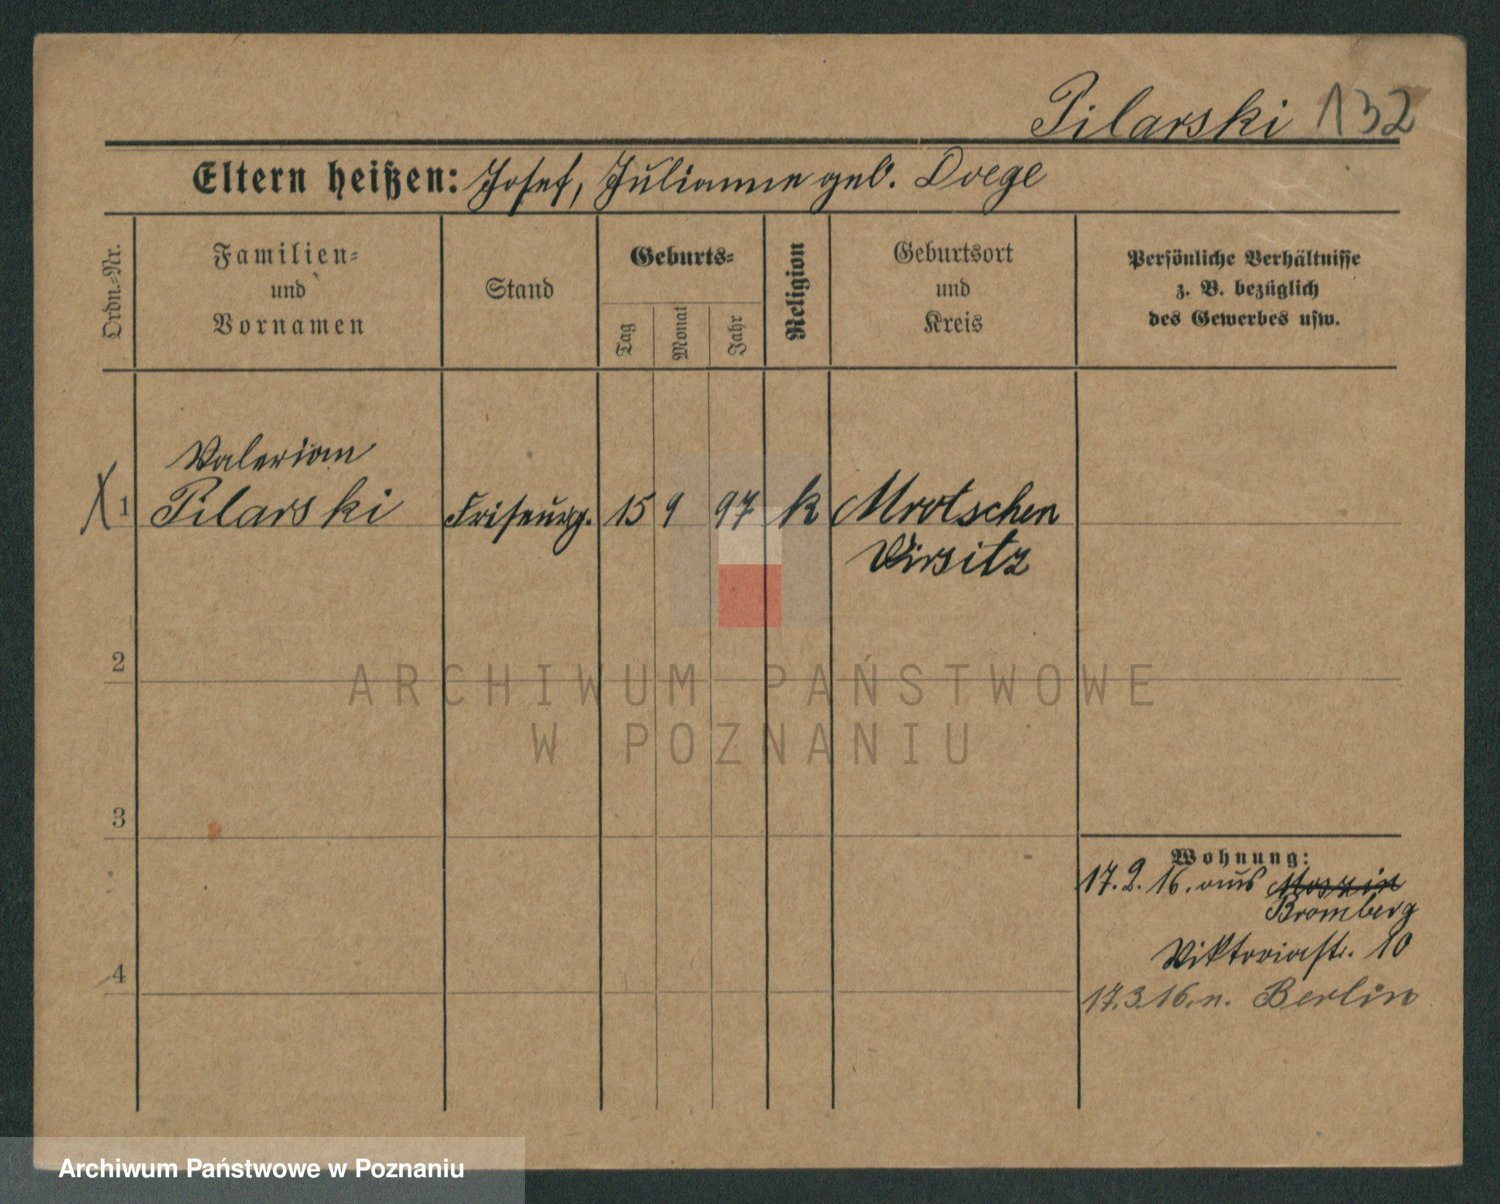 Pilarski 132
Eltern heißen: Josef, Julianne geb. Doege
Ordn.-Nr.
Familien-
und
Vornamen
Stand
Geburts-
Tag
Monat
Jahr
Religion
Geburtsort
und
Kreis
Persönliche Verhältnisse
z. B. bezüglich
des Gewerbes usw.
Valerian
1 Pilarski Friseurg. 15 9 97 k Mrotschen
Wirsitz
2
3
4
Wohnung:
17.2.16. aus Moszin
Bromberg
Viktoriastr. 10
17.3.16. n. Berlin
ARCHIWUM PAŃSTWOWE
W POZNANIU
Archiwum Państwowe w Poznaniu